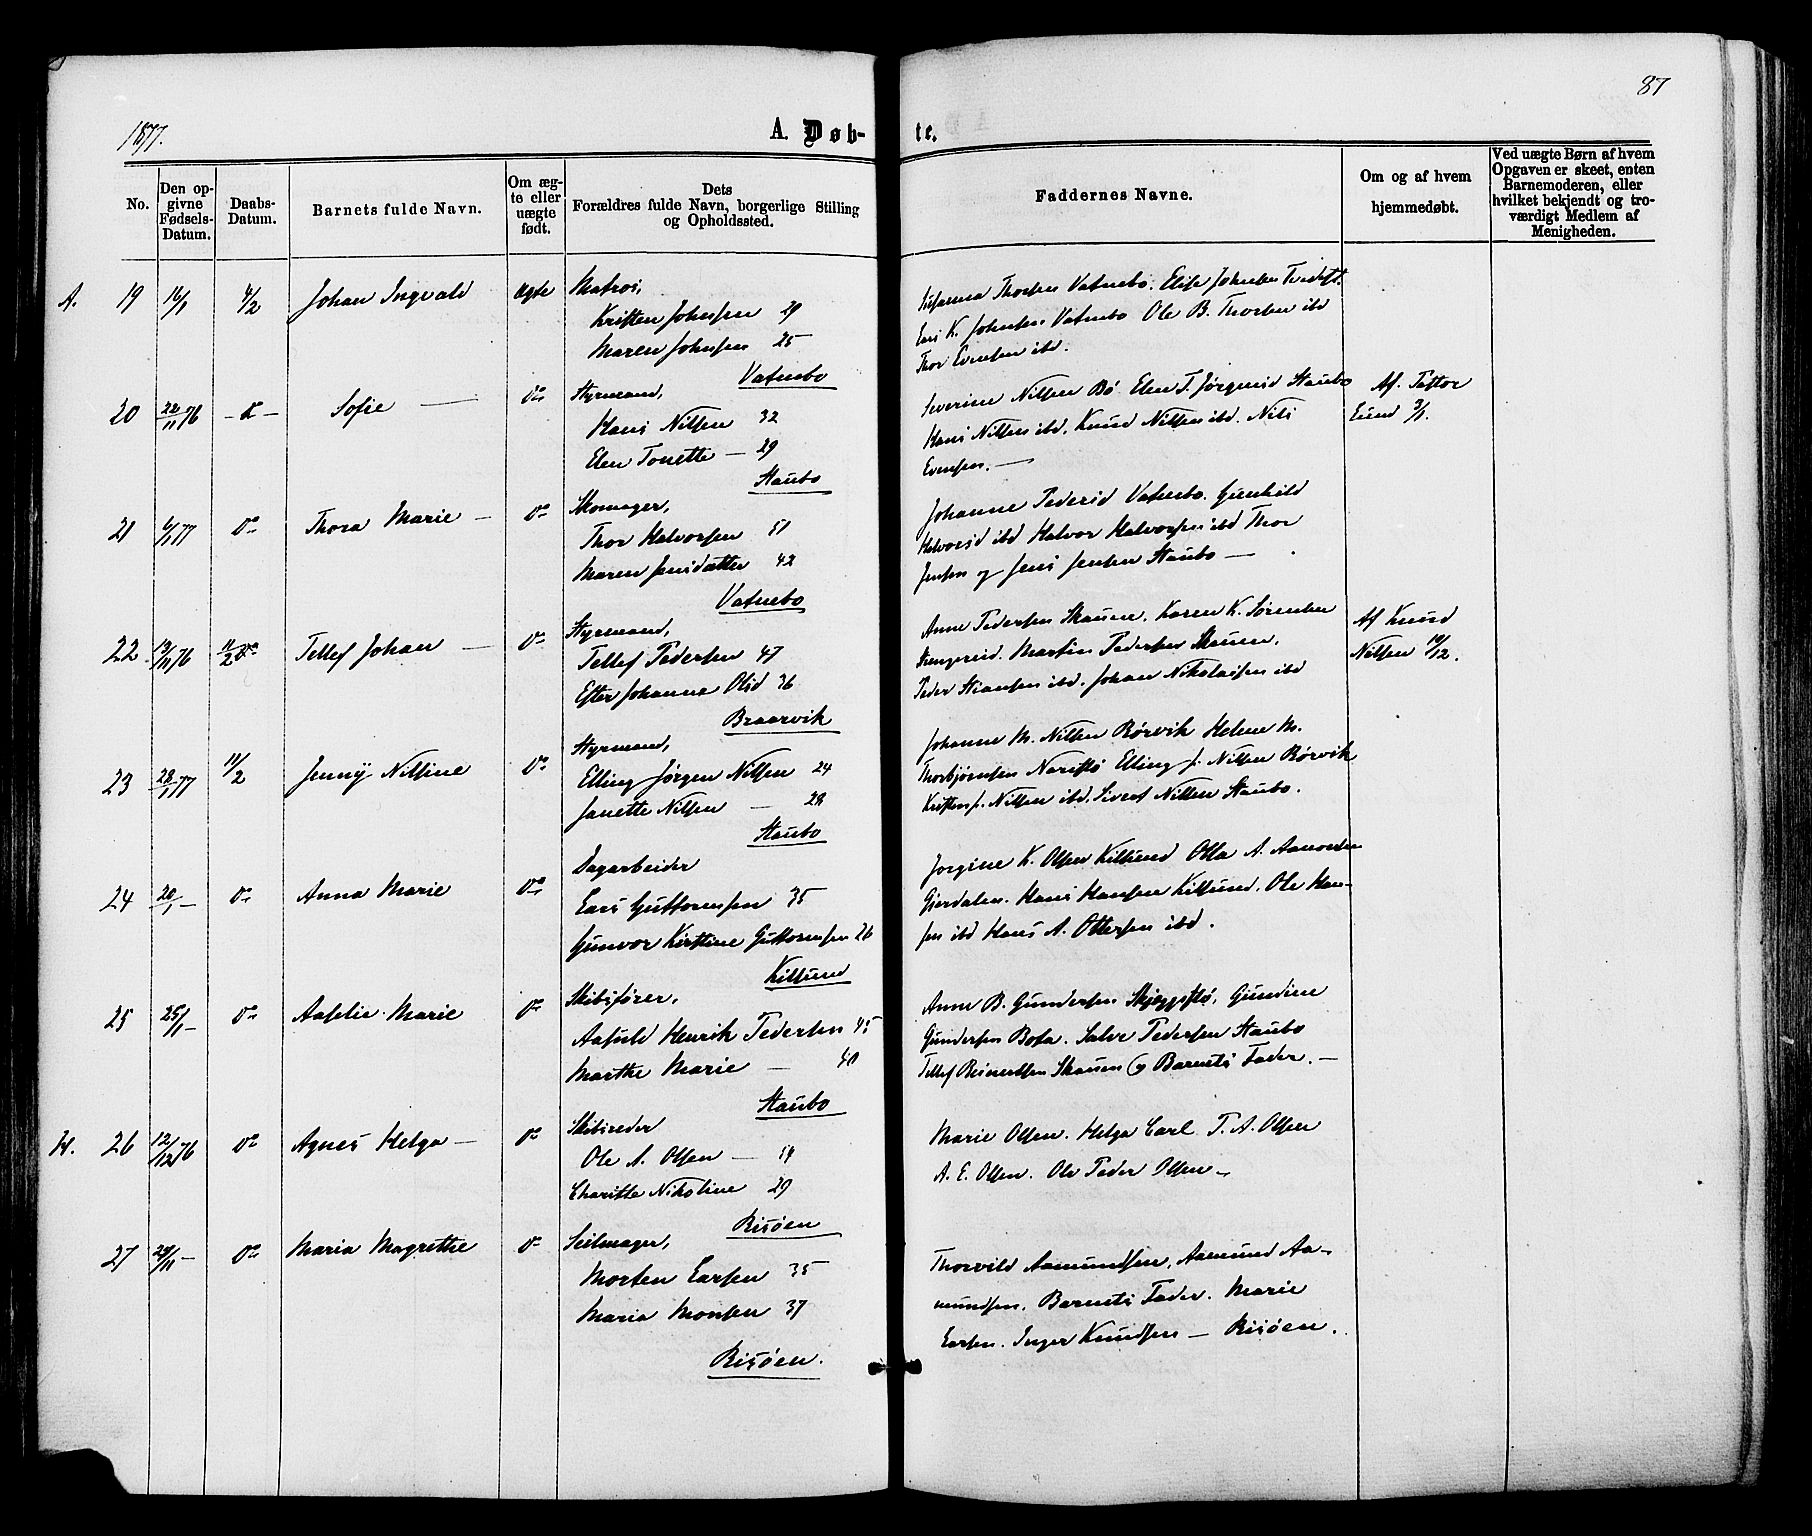 87
1877.
A. Døb-
te.
No.
Den op-
givne
Fødsels-
Datum.
Daabs-
Datum.
Barnets fulde Navn.
Om æg-
te eller
uægte
født.
Dets
Forældres fulde Navn, borgerlige Stilling
og Opholdssted.
Faddernes Navne.
Om og af hvem
hjemmedøbt.
Ved uægte Børn af hvem
Opgaven er skeet, enten
Barnemoderen, eller
hvilket bekjendt og tro-
værdigt Medlem af
Menigheden.
A. 19 16/1 4/2 Johan Ingvald ægte Matros,
Kristen Johnsen 29
Maren Johnsen 25
Vatnebo
Susanna Thorsen Vatnebo. Elise Johnsen
Lars K. Johnsen Vatnebo Ole B. Thorsen ibd
Thor Evensen ibd.
20 22/11 76 Sofie — do Styrmand,
Hans Nilsen 32
Elen Tonette — 29
Staubo
Severine Nilsen Bø. Elen T. Jørgensd Staubo
Hans Nilsen ibd. Knud Nilsen ibd. Nils
Evensen. —
Af Pastor
Lund 3/1.
21 6/1 77 do Thora Marie — do Skomager,
Thor Halvorsen 51
Maren Jensdatter 42
Vatnebo
Johanne Pedersd Vatnebo. Gunhild
Halvorsd ibd Halvor Halvorsen ibd Thor
Jensen og Jens Jensen Staubo —
22 13/11 76 11/2 do Tellef Johan — do Styrmand,
Tellef Pedersen 47
Ester Johanne Olsd 36
Braarvik
Anne Pedersen Skauen. Karen K. Sørensen
Martin Pedersen Skauen.
Peder Stiansen ibd. Johan Nikolaisen ibd
Af Knud
Nilsen 10/12.
23 28/1 77 11/2 Jenny Nilsine do Styrmand,
Elling Jørgen Nilsen 24
Janette Nilsen — 28
Staubo
Johanne M. Nilsen Rørvik Helene M.
Thorbjørnsen Narestø Elling J. Nilsen Rørvik
Kristen J. Nilsen ibd. Sivert Nilsen Staubo.
24 20/1 — do Anna Marie do Dagarbeider
Lars Guttormsen 35
Gunvor Kirstine Guttormsen 26
Kilsund
Jorgine K. Olsen Kilsund Olla A. Aanonsen
Gjerdalen. Hans Hansen Kilsund. Ole Han-
sen ibd Hans A. Ottersen ibd.
25 25/1 — do Aaselie Marie do Skibsfører,
Aasuld Henrik Pedersen 45
Marthe Marie — 40
Staubo
Anne B. Gundersen Skjeggestø, Gundine
Gundersen Bota. Salve Pedersen Staubo
Tellef Reinertsen Skauen og Barnets Fader. —
H. 26 12/12 76 do Agnes Helga — do Skibsreder
Ole A. Olsen — 59
Charitte Nikoline 29
Risøen
Marie Olsen. Helga Carl T. A. Olsen
A. E. Olsen. Ole Peder Olsen —
27 29/11 — do Maria Magrethe do Seilmager,
Morten Larsen 35
Maria Monsen 37
Risøen.
Thorvild Aamundsen. Aamund Aa-
mundsen. Barnets Fader. Marie
Larsen. Inger Knudsen — Risøen.